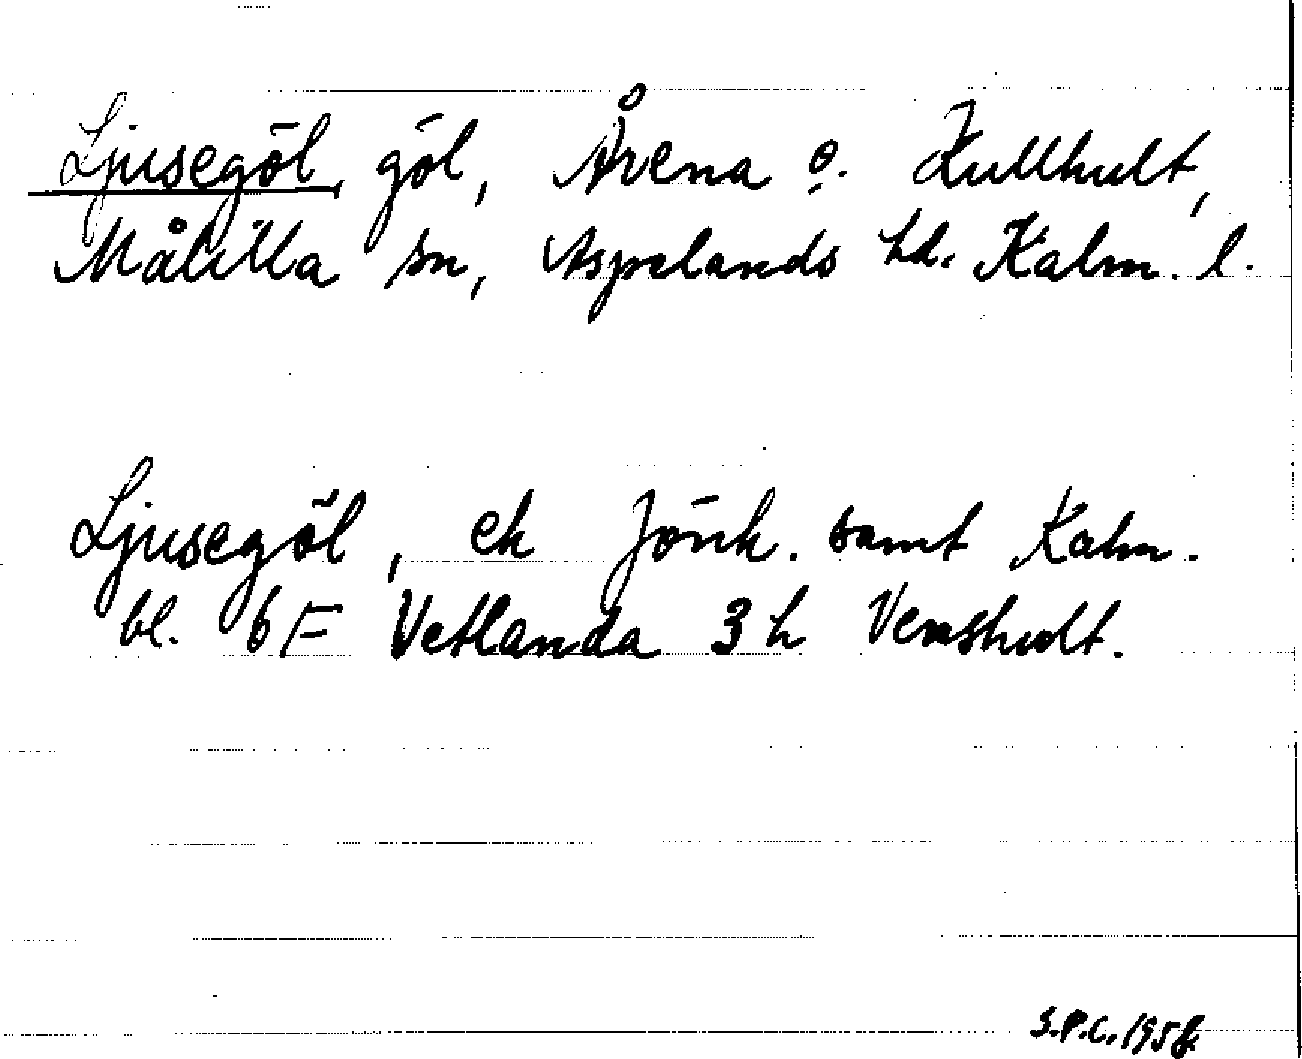 Ljusegöl, göl, Årena o. Kullhult,
Målilla sn, Aspelands hd. Kalm. l.
Ljusegöl, ek Jönk. samt Kalm.
bl. 6 F Vetlanda 3 h Venshult.
S.P.C. 1958.